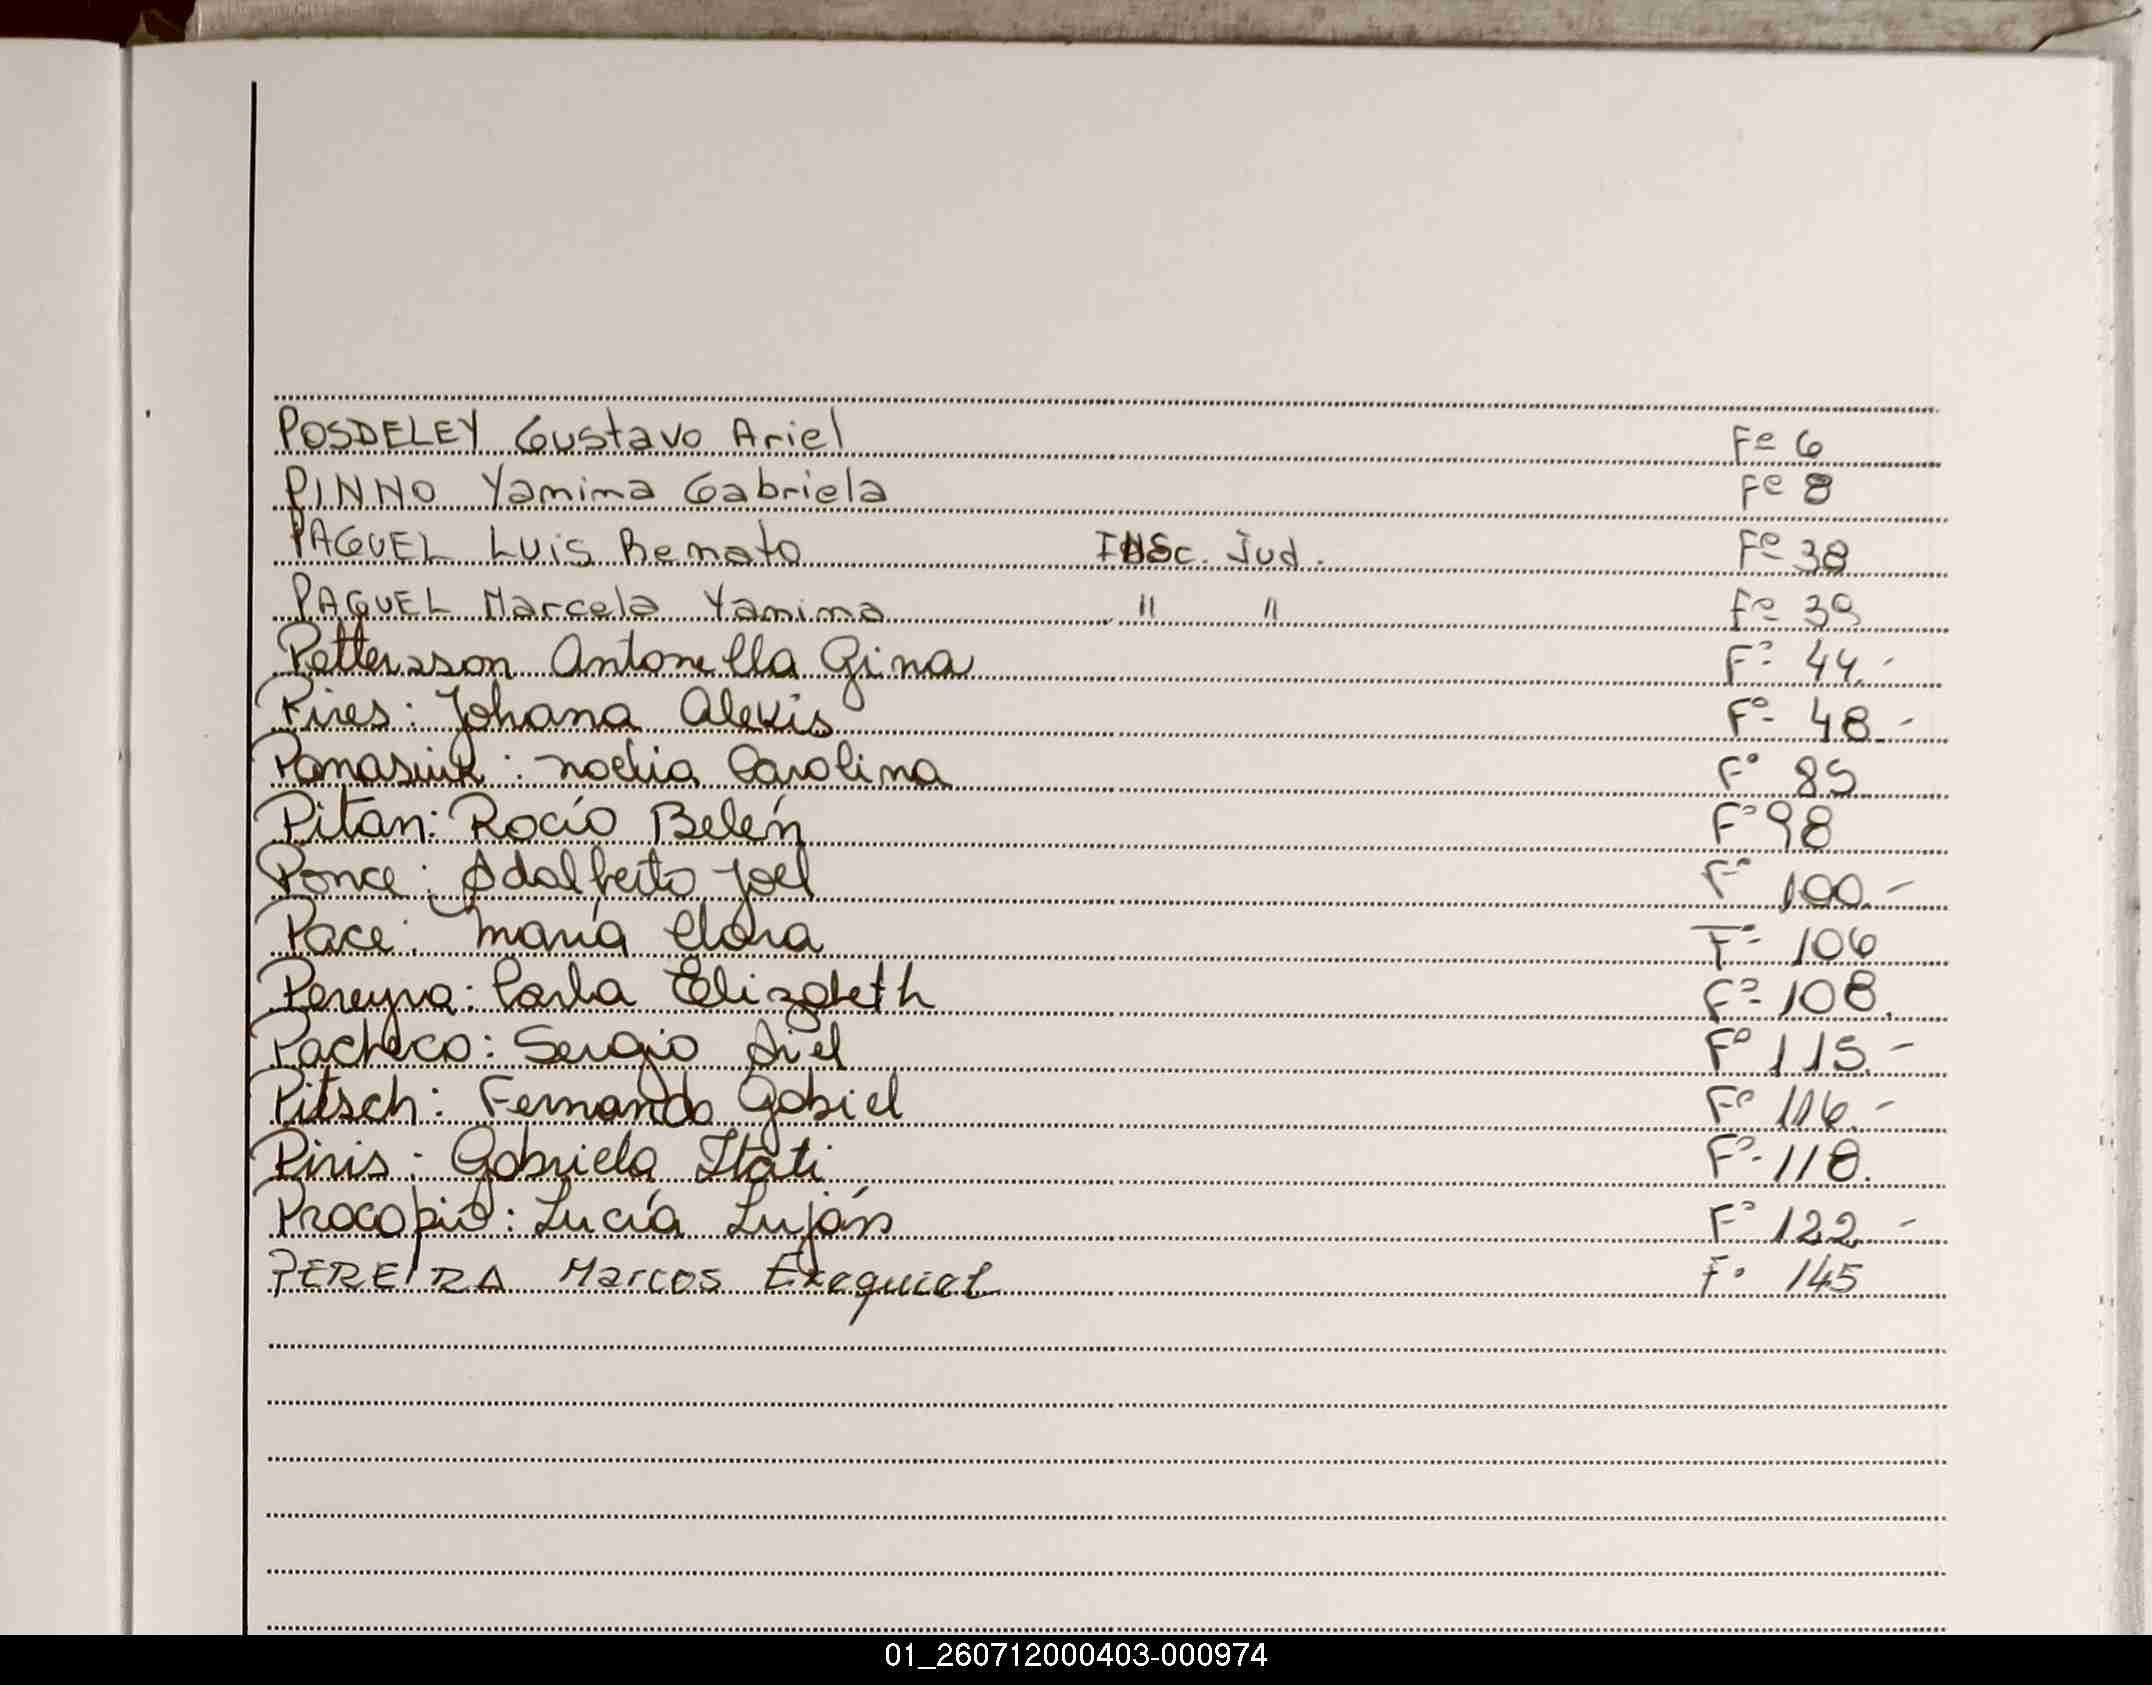 POSDELEY Gustavo Ariel Fº 6
PINNO Yamina Gabriela Fº 8
PAGUEL Luis Renato INSc. Jud. Fº 38
PAGUEL Marcela Yanina " " Fº 39
Pettersson Antonella Gina Fº 44.-
Pires: Johana Alexis Fº 48.-
Panasiuk: noelia Carolina Fº 85
Pitan: Rocío Belén Fº 98
Ponce: Adalberto Joel Fº 100.-
Pace: María Clara Fº 106
Pereyra: Carla Elizabeth Fº 108.
Pacheco: Sergio Ariel Fº 115.-
Pitsch: Fernando Gabriel Fº 116.-
Piris: Gabriela Itati Fº 118.
Procopio: Lucía Luján Fº 122.-
PEREIRA Marcos Ezequiel Fº 145
01_260712000403-000974